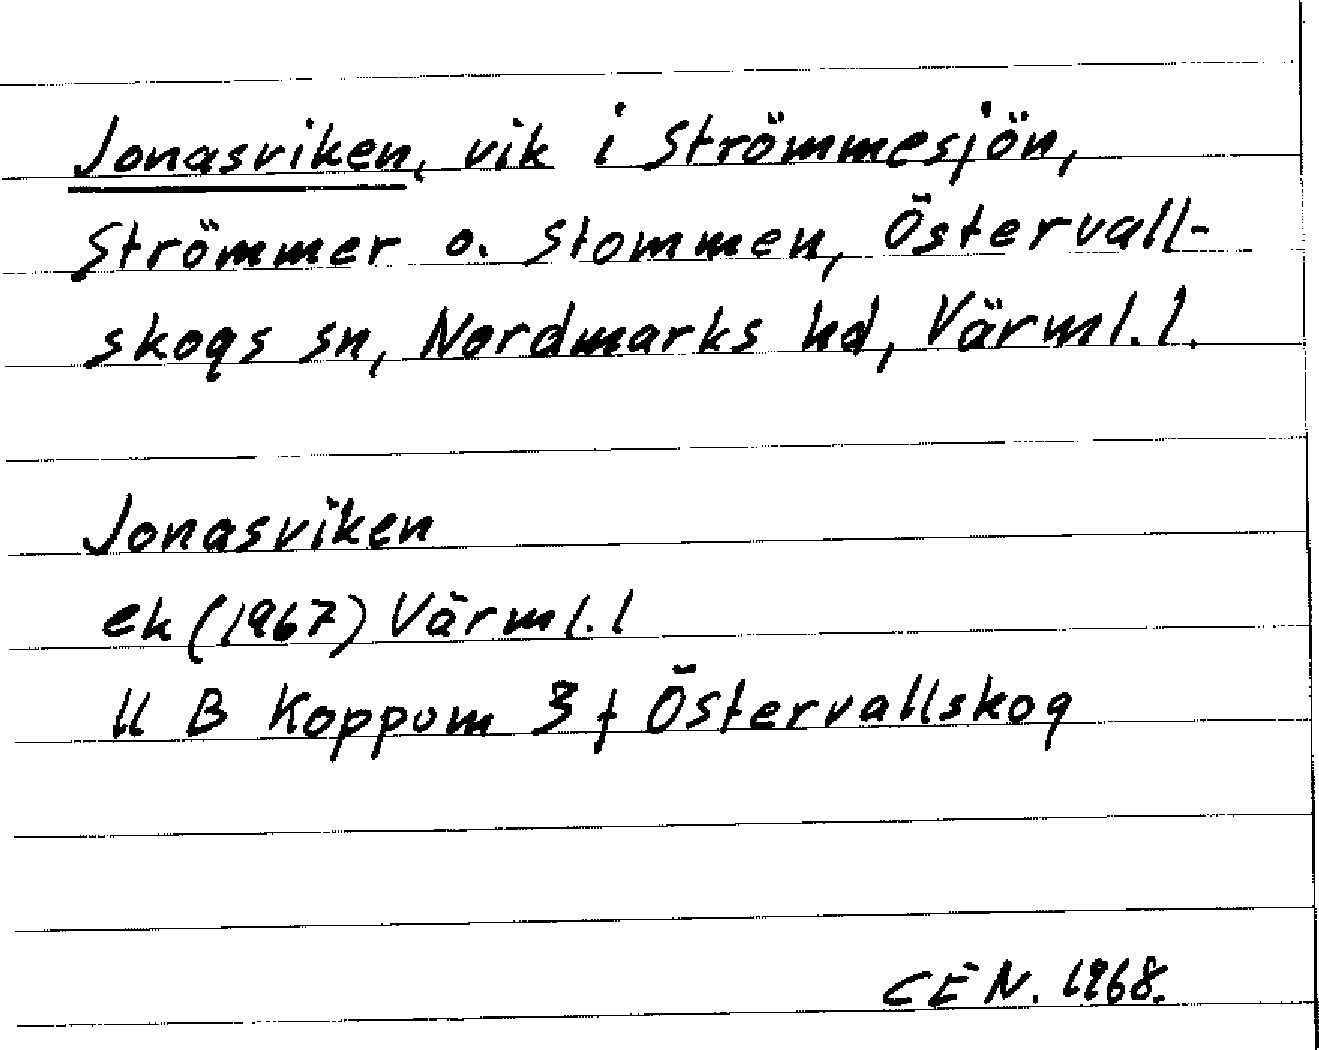 Jonasviken, vik i Strömmesjön,
Strömmer o. Stommen, Östervall-
skogs sn, Nordmarks hd, Värml. l.
Jonasviken
ek (1967) Värml. l
11 B Koppom 3 f Östervallskog
CEN. 1968.